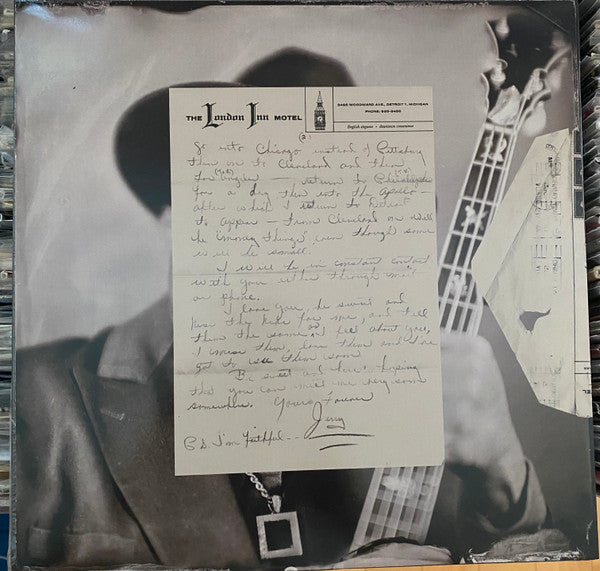 THE London Inn MOTEL
3465 WOODWARD AVE., DETROIT 1, MICHIGAN
PHONE:
English elegance • downtown convenience
(2)
Go into Chicago instead of Pittsburg
then on to Cleveland and then
Los Angeles — I return to
for a day then into the Apollo —
after which I return to Detroit
to appear — from Cleveland on will
be "money things" even though some
will be small.
I will be in constant contact
with you either through mail
or phone.
I love you, be sweet and
kiss the kids for me, and tell
them the same as I feel about you,
I miss them, love them and I've
got to see them soon
Be sweet and here's hoping
that you can meet me very soon
somewhere. Yours Forever
Jerry
P.S. I'm faithful --